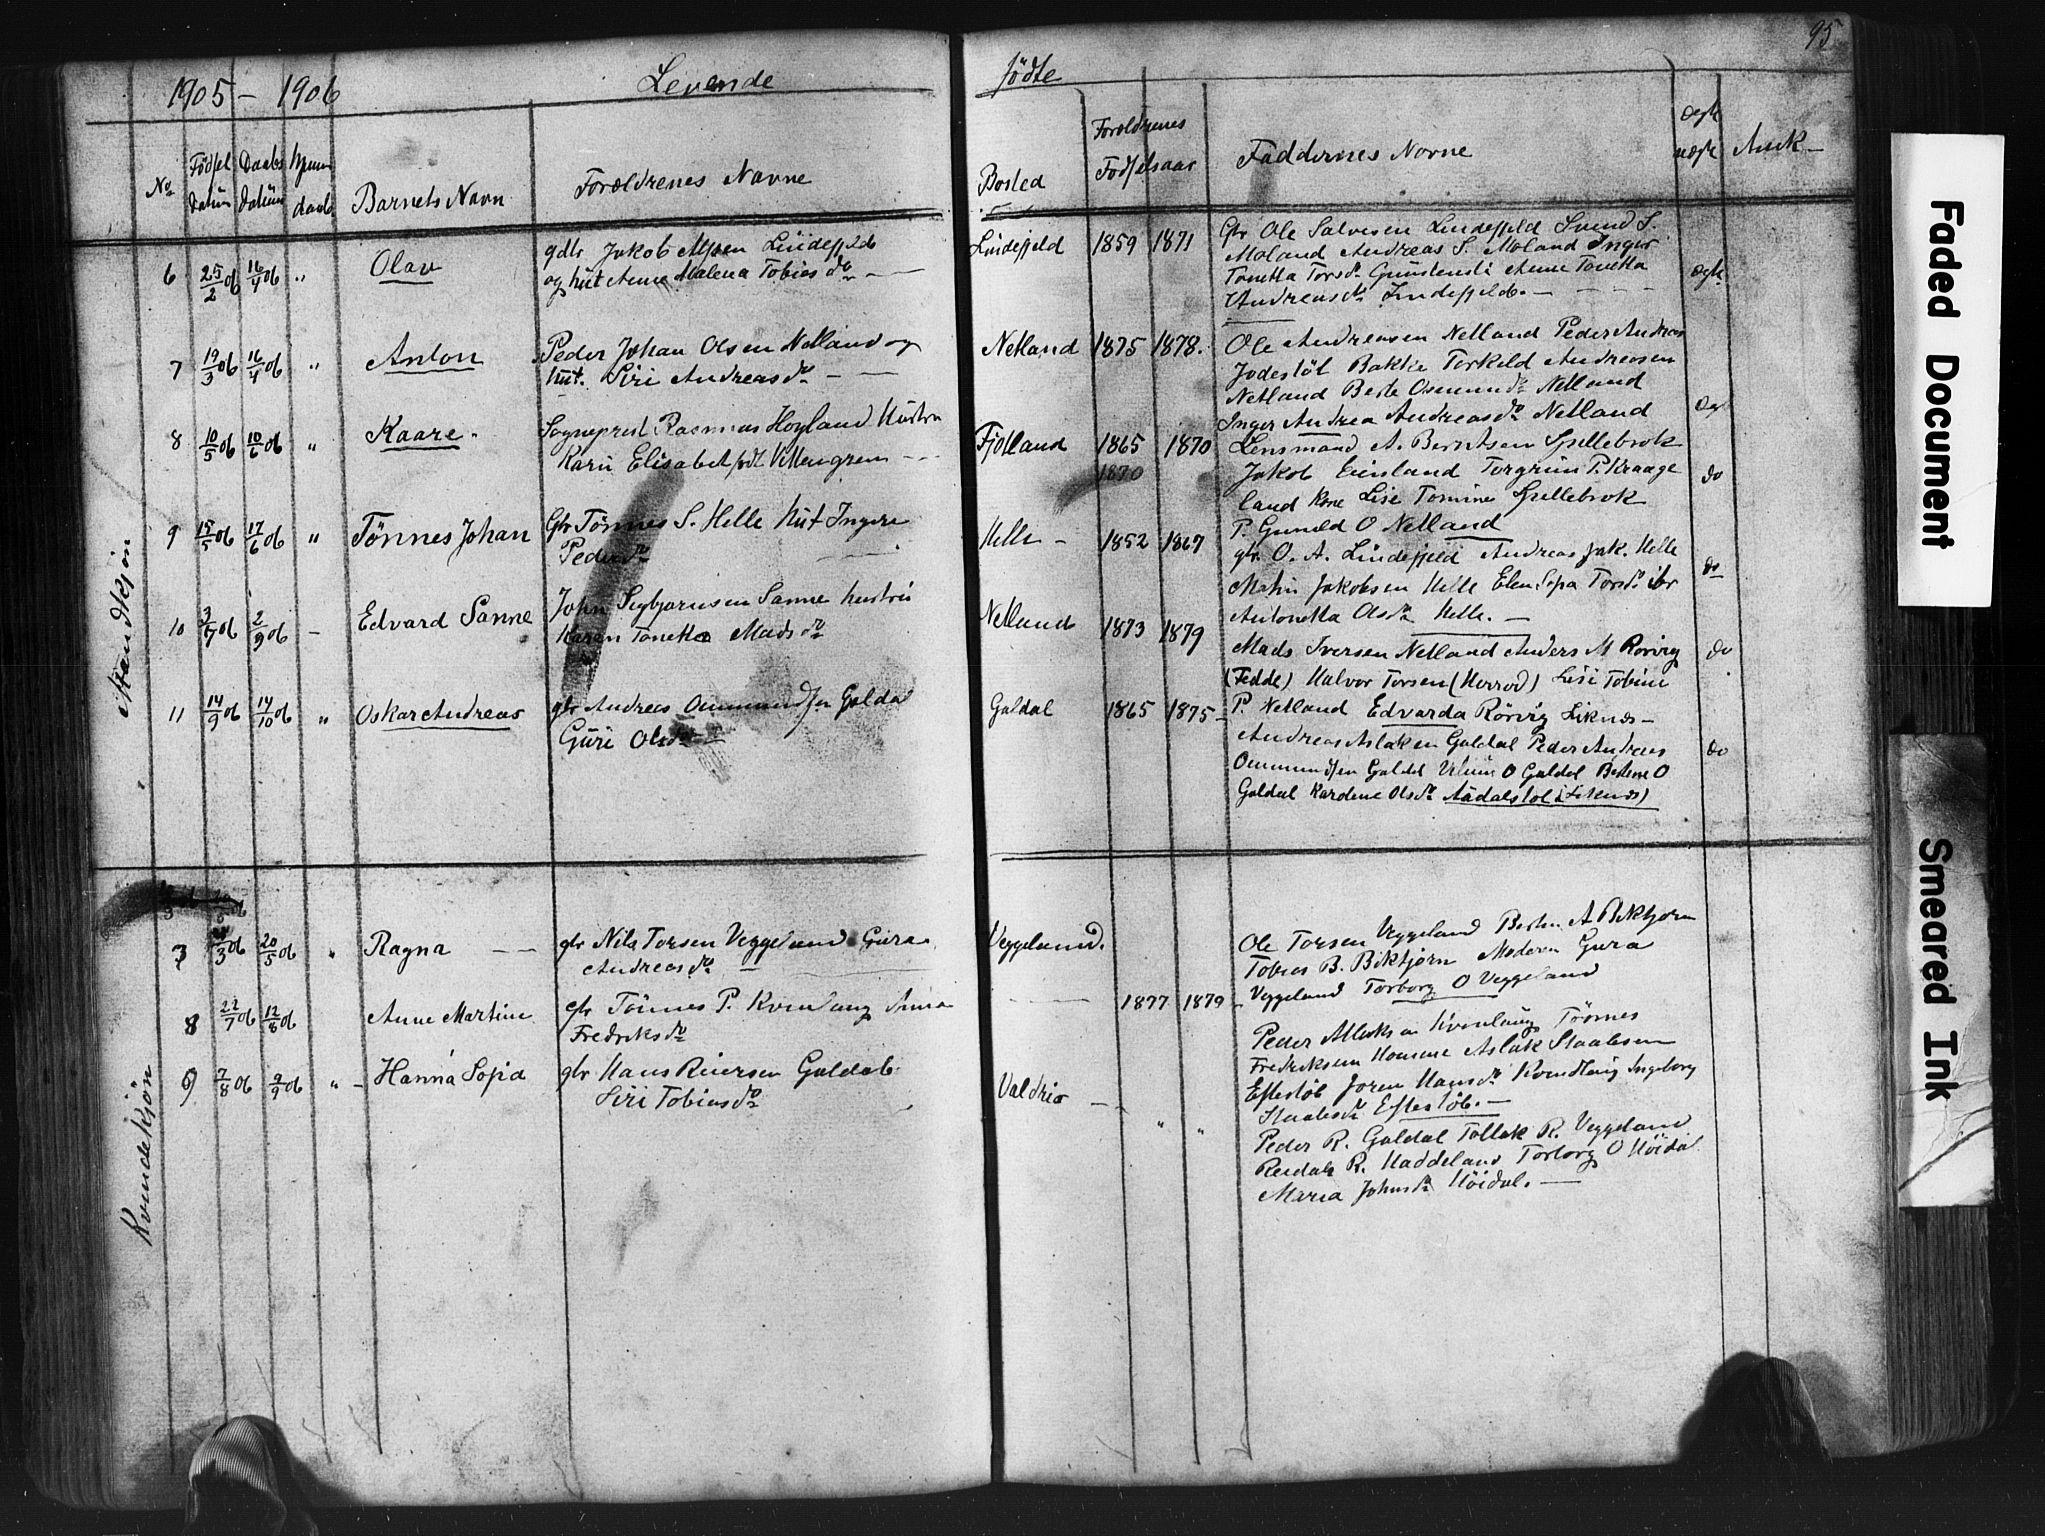 95
1905 – 1906 Levende födte
No Födsel datum Daabs datüm Hjemme daab Barnets Navn Forældrenes Navne Bosted Forældrenes Födselsaar Faddernes Navne Ægte uægte Anck –
Mandkjön
6 25/2 06 16/4 06 " Olav
gdbr Jakob Alfsen Lindefjeld
og hüt Anne Malena Tobiasdo –
Lindefjeld 1859 1871
Gbr Ole Salvesen Lindefjeld Svend S.
Moland Andreas S. Moland Inger
Tonetta Torsdr Anne Tonetta
Andreasdr Lindefjeld. –
Ægte
7 19/3 06 16/4 06 " Anton
Peder Johan Olsen Netland og
hüt. Siri Andreasdr –
Netland 1875 1878.
Ole Andreasen Netland Peder Andreas
Jodestöl Bakke Torkeld Andreasen
Netland Berte Osmundsdr Netland
Inger Andrea Andreasdr Netland
Ægt
8 10/5 06 10/6 06 " Kaare.
Sogneprest Rasmus Hoyland Hustru
Karii Elisabet födt Vettengren – –
Fjotland 1865 1870
1870
Lensmand A. Berntsen Spillebrok
Jakob Eiesland Torgrim P. Kraage
land Kone Lise Tomine Spillebrok
P. Gunvald O Netland
do
9 15/5 06 17/6 06 " Tönnes Johan
Gbr Tönnes S. Helle Hüt Ingere
Pedersdr
Helle – 1852 1867
gbr. O. A. Lindefjeld Andreas Jak. Helle
Jakobsen Helle Elen Sofia Torsdr
Antonetta Olsdr Helle. –
do
10 3/7 06 2/9 06 – Edvard Sanne
John Sigbjornsen Sanne hustru
Karen Tonetta Madsdr
Netland 1873 1879
Mads Iversen Netland Anders M Rörvig
(Fedde) Halvor Torsen (Herrod) Lise Tobine
P. Netland Edvarda Rörvig Liknes –
do
11 14/9 06 14/10 06 " Oskar Andreas
gbr Andreas Ommundsen Galdal
Güri Olsdr
Galdal 1865 1875 –
Andreas Aslaksen Galdal Peder Andreas
Ommundsen Galdal O Galdal Bertine O
Galdal Kardine Olsdr Aadalstöl (Liknes)
do
Kvindekjön
7 3 06 20/5 06 " Ragna – –
gbr Nils Torsen Veggeland Güra
Andreasdr –
Veggeland.
Ole Torsen Veggeland A Birkjorn
Tobias B. Birkjorn Moderen Gura
Veggeland Torborg O Veggeland
8 22/7 06 12/8 06 Anne Martine
gbr Tönnes P. Kvindlaug Anna
Fredriksdr
1877 1879 –
Peder Aslaksen Kvinlaug Tönnes
Fredriksen Homme Aslak Staalesen
Eftestöl Joren Hansdr Kvindlaug Ingeborg
Staalesdr Eftestöl. –
9 7/8 06 9/9 06 " – Hanna Sofia
gbr Hans Reiersen Galdal
Siri Tobiasdr
Valdrio – " "
Peder R. Galdal Tollak R. Veggeland
Reidar R. Haddeland Torborg O Höidal
Maria Johnsdr Höidal. –
Faded Document
Smeared Ink